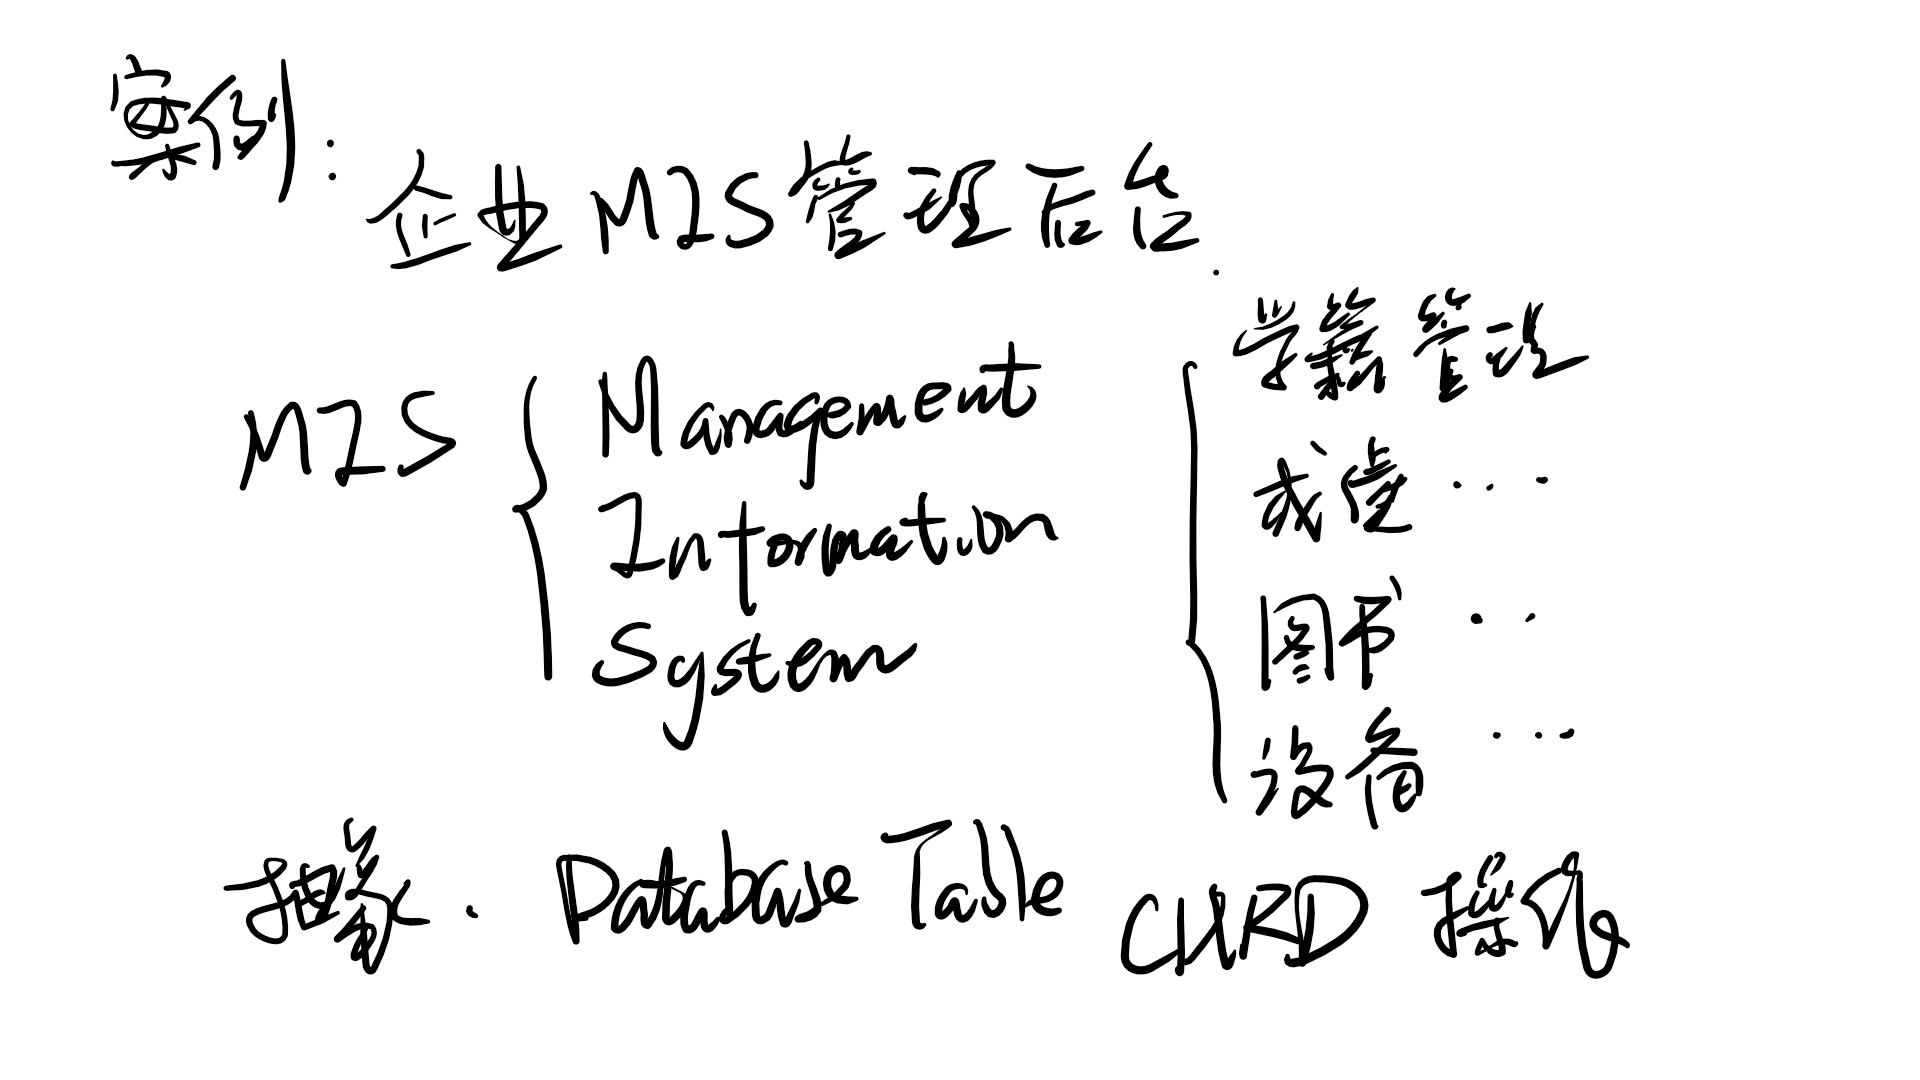 案例：
企业MIS管理后台.
MIS { Management
Information
System
{ 学籍管理
成绩 ...
图书 ..
设备 ...
抽象. Database Table CURD 操作